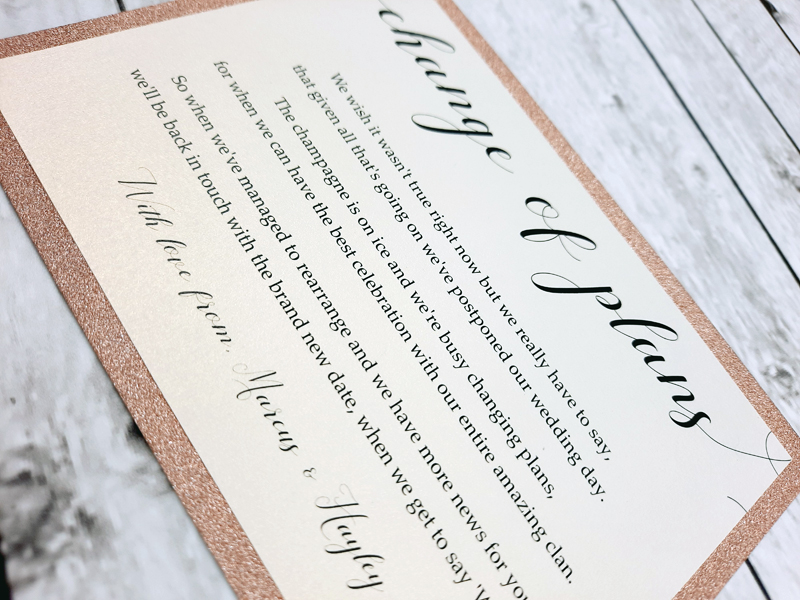 change of plans
We wish it wasn't true right now but we really have to say,
that given all that's going on we've postponed our wedding day.
The champagne is on ice and we're busy changing plans,
for when we can have the best celebration with our entire amazing clan.
So when we've managed to rearrange and we have more news for you
we'll be back in touch with the brand new date, when we get to say '
With love from, Marcus & Hayley